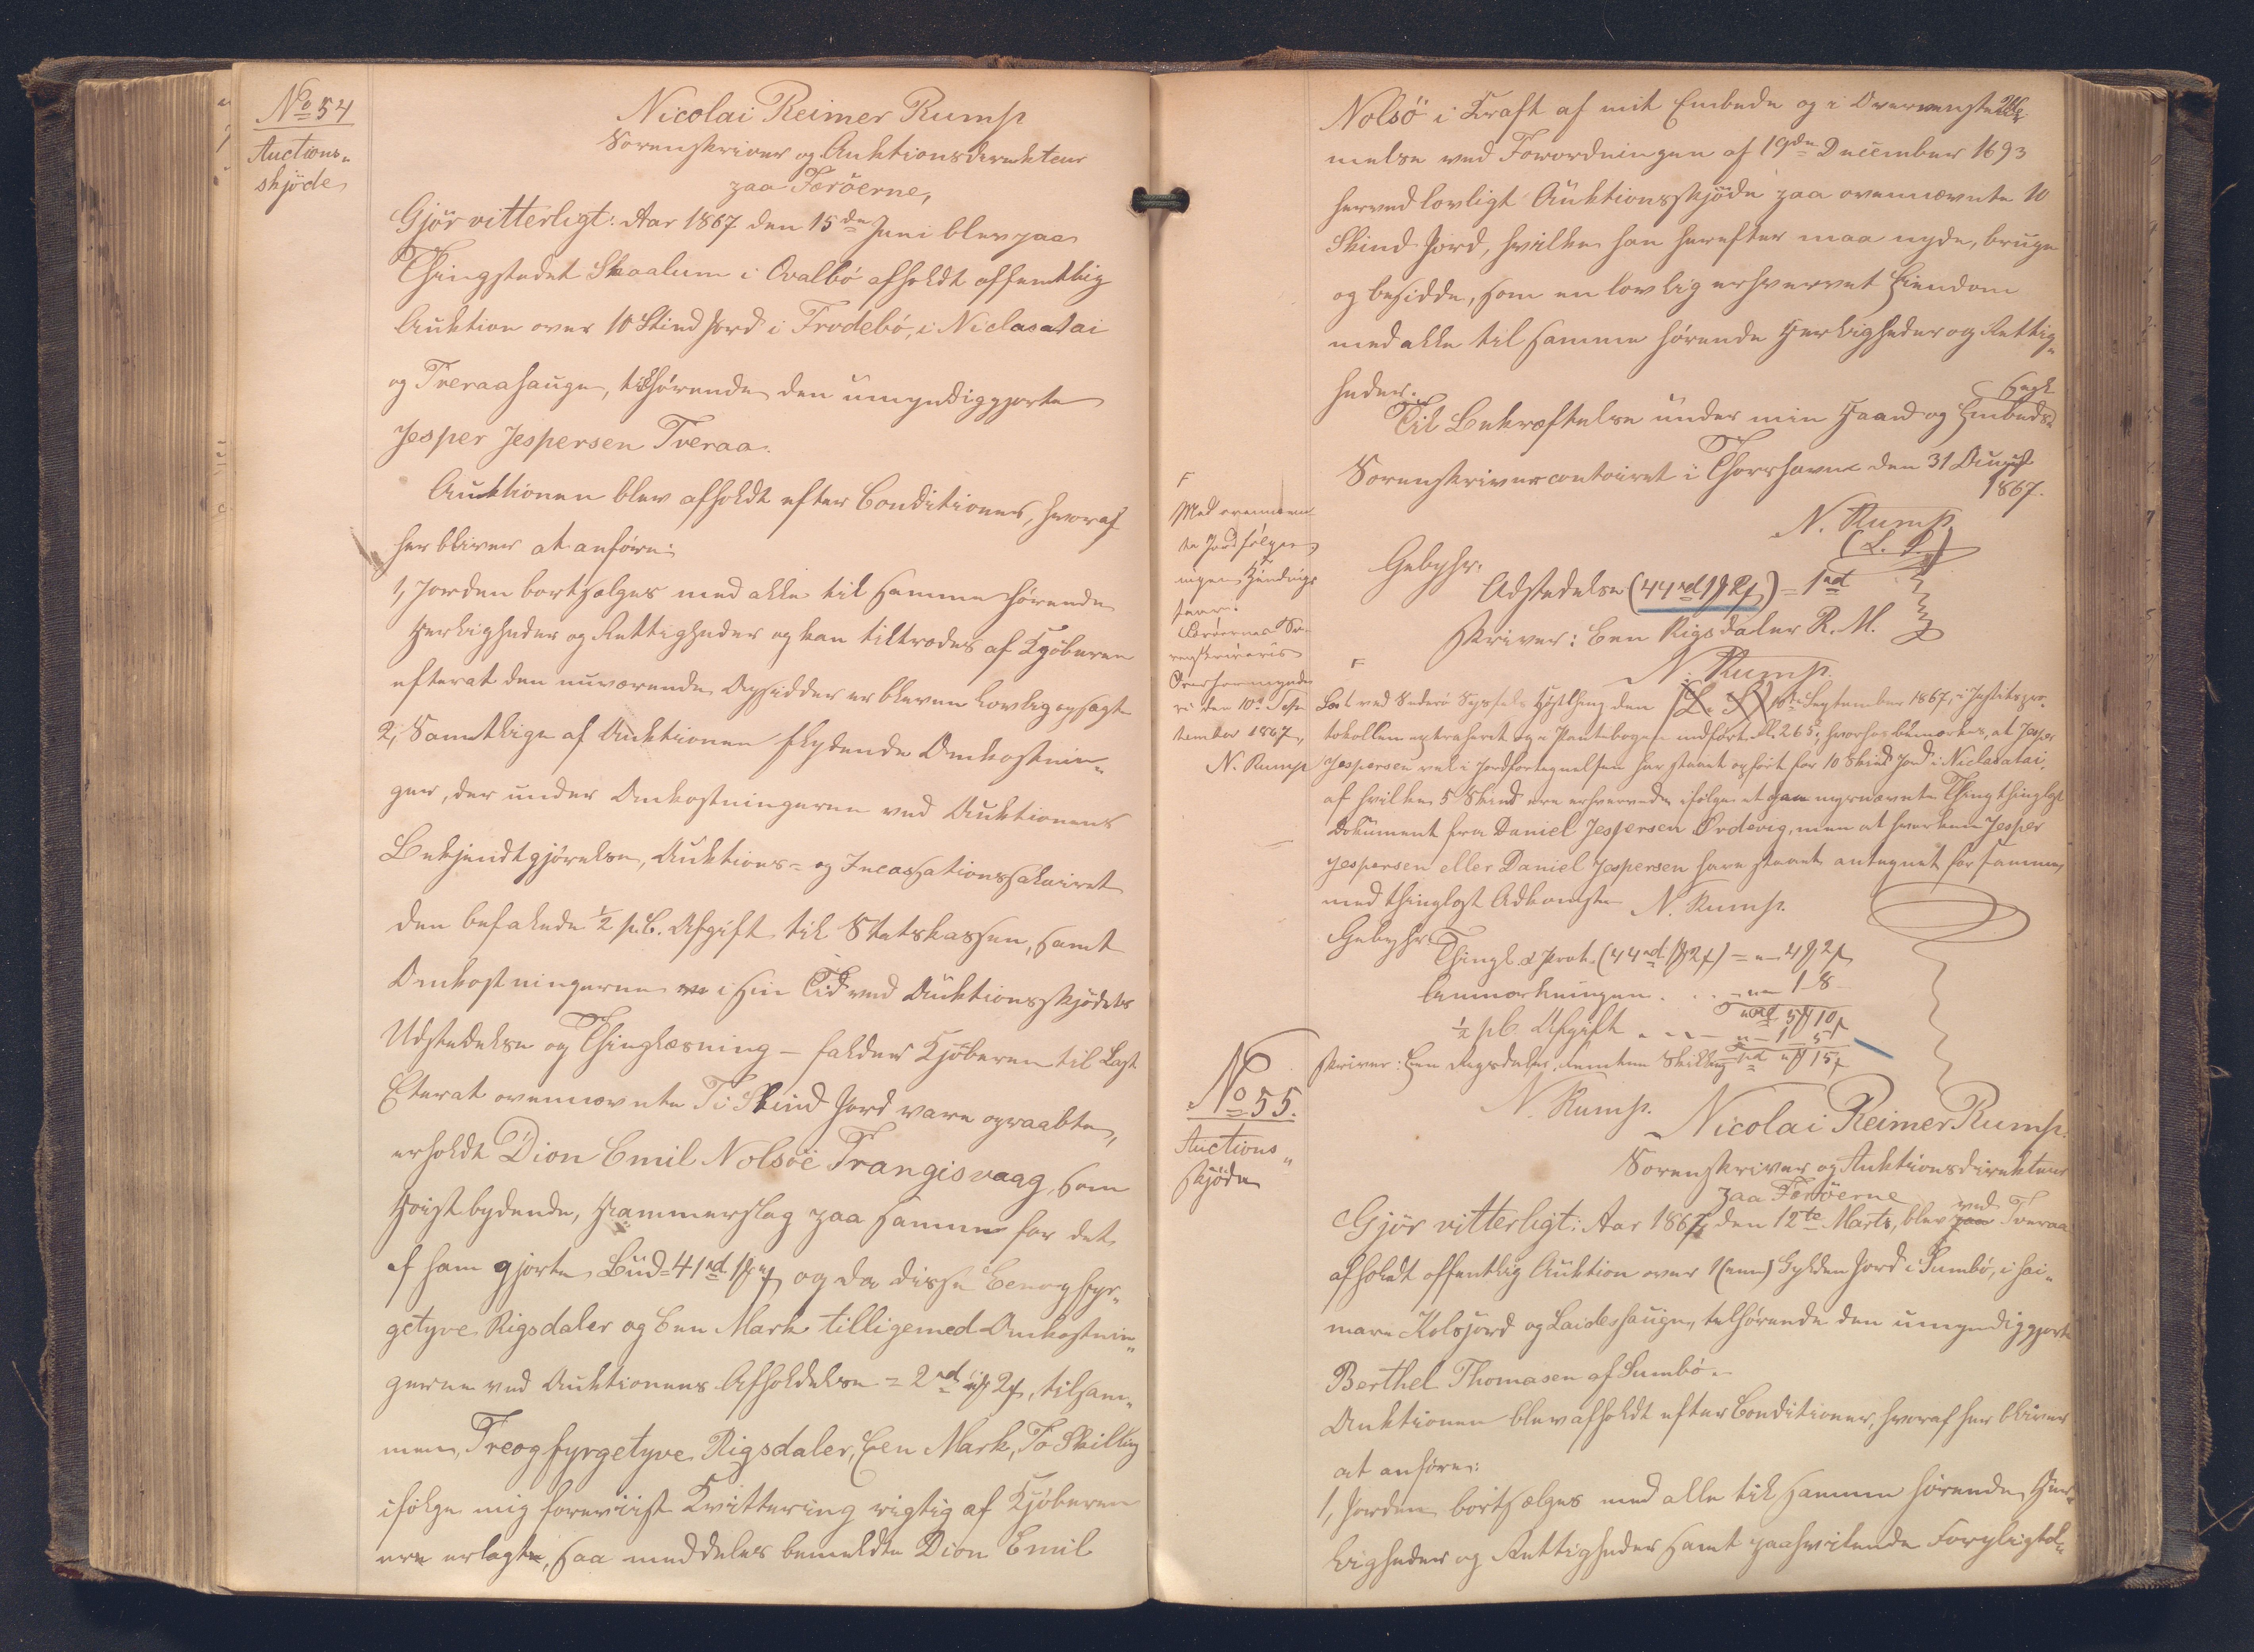 No 54
Auctions-
skjöde
Nicolai Reimer Rump
Sorenskriver og Auktionsdirekteur
paa Færöerne,
Gjör vitterligt: Aar 1867 den 15de Juni blev paa
Thingstedet Skaalum i Qvalbö afholdt offentlig
Auktion over 10 Skind Jord i Frodebö, i Niclasatai
og Tveraahauge, tilhörende den umyndiggjorte
Jesper Jespersen Tveraa.
Auktionen blev afholdt efter Conditioner, hvoraf
her bliver at anföre:
1, Jorden bortsælges med alle til samme hörende
Herligheder og Rettigheder og kan tiltrædes af Kjöberen
efterat den nuværende Opsidder er bleven lovlig opsagt
2, Samtlige af Auktionen flydende Omkostnin-
ger, der under Omkostningerne ved Auktionens
Bekjendtgjörelse, Auktions- og Incassationssalairet
den befalede ½ p.C. Afgift til Statskassen, samt
Omkostningerne i sin Tid ved Auktionsskjödets
Udstedelse og Thinglæsning - falder Kjöberen til Last
Efterat ovennævnte Ti Skind Jord vare opraabte,
erholdt Dion Emil Nolsöe Trangisvaag, som
Höistbydende, Hammerslag paa samme for det
af ham gjorte Bud = 41 rd 1 og da disse Eenogfyr-
getyve Rigsdaler og Een Mark tilligemed Omkostnin-
gerne ved Auktionens Afholdelse = 2 rd 2 s, tilsam-
men, Treogfyrgetyve Rigsdaler, Een Mark, To Skilling
ifölge mig foreviist Kvittering rigtig af Kjöberen
ere erlagte, saa meddeles bemeldte Dion Emil
Nolsö i Kraft af mit Embede og i Overensstem-
melse med Forordningen af 19de December 1693
herved lovligt Auktionsskjöde paa ovennævnte 10
Skind Jord, hvilke han herefter maa nyde, bruge
og besidde, som en lovlig erhvervet Eiendom
med alle til samme hörende Herligheder og Rettig-
heder.
Til Bekræftelse under min Haand og Embeds-
Segl
Sorenskrivercontoiret i Thorshavn den 31 August
1867.
N. Rump
(L. S.)
Gebyhr.
Udstedelse (44 rd 1 2 s) = 1 rd
skriver: Een Rigsdaler R. M.
N. Rump.
F
Med ovennævn-
te Jord fölger
ingen
Færöernes So-
renskriveris
Overformynde-
ri den 10de Sep-
tember 1867,
N. Rump
F
Læst ved Suderö Syssels Höstthing den 10de September 1867, i Justitspro-
tokollen extraheret og i Pantebogen indfört fol. 265; hvorhos bemærkes, at Jesper
Jespersen vel i Jordfortegnelsen har staaet opfört for 10 Skind Jord i Niclasatai,
af hvilke 5 Skind ere erhvervede ifölge et paa nysnævnte Thing thinglyst
Dokument fra Daniel Jespersen Ördevig, men at hverken Jesper
Jespersen eller Daniel Jespersen have staaet antegnet for samme
med thinglyst Adkomst. N. Rump.
Gebyhr.
Thingl. & Prot. (44 rd 1 2 s) = 4 2 s
Anmærkningen . . . 1 8
5 10 s
½ pC. Afgift . . . 1 5
skriver: Een Rigsdaler, femten Skilling 1 rd 15 s
N. Rump.
No 55.
Auctions-
skjöde
Nicolai Reimer Rump.
Sorenskriver og Auktionsdirekteur
paa Færöerne
Gjör vitterligt: Aar 1867 den 12te Marts, blev paa ved Tveraa
afholdt offentlig Auktion over 1 (een) Gylden Jord i Sumbö, i Hei-
mare Kolsjord og Laideshauge, tilhörende den umyndiggjorte
Berthel Thomasen af Sumbö.
Auktionen blev afholdt efter Conditioner, hvoraf her bliver
at anföre:
1, Jorden bortsælges med alle til samme hörende Her-
ligheder og Rettigheder samt paahvilende Forpligtel-